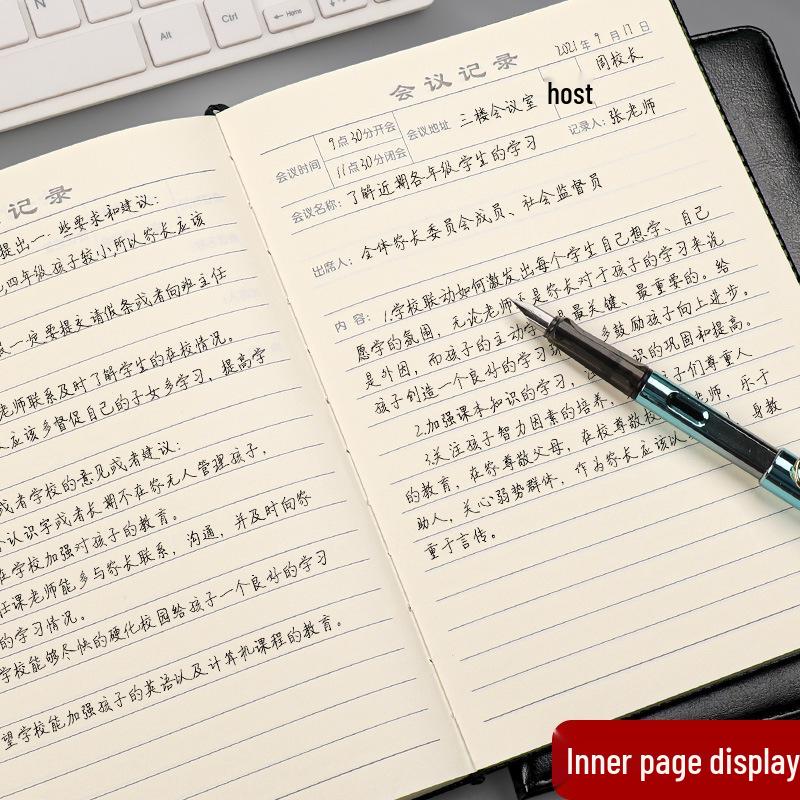 N
Alt
Ctrl
Home
记录
提出一些要求和建议:
四年级孩子较小所以家长应该
一定要提交请假条或者向班主任
老师联系及时了解学生的在校情况。
应该多督促自己的子女多学习，提高学
或者学校的意见或者建议:
认识字或者长期不在家无人管理孩子，
在学校加强对孩子的教育。
任课老师能多与家长联系，沟通，并及时向家
的学习情况。
学校能够尽快的硬化校园给孩子一个良好的学习
望学校能加强孩子的英语以及计算机课程的教育。
会议记录
2021年9月17日
会议时间
9点30分开会
11点30分闭会
会议地址 三楼会议室
host
周校长
记录人: 张老师
会议名称: 了解近期各年级学生的学习
出席人: 全体家长委员会成员、社会监督员
内容: 1.学校联动如何激发出每个学生自己想学、自己
愿学的氛围，无论老师还是家长对于孩子的学习来说
是外因，而孩子的主动学 是最关键、最重要的。给
孩子创造一个良好的学习环 多鼓励孩子向上进步。
2.加强课本知识的学习， 识的巩固和提高。
3.关注孩子智力因素的培养， 子们尊重人
的教育，在家尊敬父母，在校尊敬 老师，乐于
助人，关心弱势群体，作为家长应该以 身教
重于言传。
Inner page display